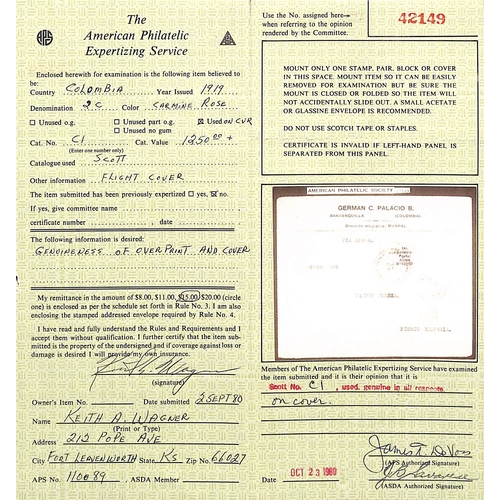 The
American Philatelic
Expertizing Service
APS
Enclosed herewith for examination is the following item believed to
be:
Country COLOMBIA Year Issued 1919
Denomination 2C Color CARMINE ROSE
Unused o.g. Unused part o.g. Used ON CVR
Unused no gum
Cat. No. C1 Cat. Value 1250.00 +
(Enter one number only)
Catalogue used SCOTT
Other information FLIGHT COVER
The item submitted has been previously expertized yes, no.
If yes, give committee name
certificate number , date
The following information is desired:
GENUINENESS OF OVERPRINT AND COVER
My remittance in the amount of $8.00, $11.00, $15.00, $20.00 (circle
one) is enclosed as per the schedule set forth in Rule No. 3. I am also
enclosing the stamped addressed envelope required by Rule No. 4.
I have read and fully understand the Rules and Requirements and I
accept them without qualification. I further certify that the item sub-
mitted is the property of the undersigned and if coverage against loss or
damage is desired I will provide my own insurance.
(signature)
Owner's Item No. Date submitted 2 SEPT 80
Name KEITH A. WAGNER
(Print or Type)
Address 212 POPE AVE
City FORT LEAVENWORTH State KS Zip No. 66027
APS No. 110089 ASDA Member
Use the No. assigned here
when referring to the opinion
rendered by the Committee.
42149
MOUNT ONLY ONE STAMP, PAIR, BLOCK OR COVER
IN THIS SPACE. MOUNT ITEM SO IT CAN BE EASILY
REMOVED FOR EXAMINATION BUT BE SURE THE
MOUNT IS CLOSED OR FOLDED SO THE ITEM WILL
NOT ACCIDENTALLY SLIDE OUT. A SMALL ACETATE
OR GLASSINE ENVELOPE IS RECOMMENDED.
DO NOT USE SCOTCH TAPE OR STAPLES.
CERTIFICATE IS INVALID IF LEFT-HAND PANEL IS
SEPARATED FROM THIS PANEL.
AMERICAN PHILATELIC SOCIETY
GERMAN C. PALACIO B.
BARRANQUILLA (COLOMBIA)
Members of The American Philatelic Expertizing Service have examined
the item submitted and it is their opinion that it is
Scott No. C1, used, genuine in all respects
on cover.
James T. DeVoss
(APS Authorized Signature)
Date OCT 23 1980
(ASDA Authorized Signature)